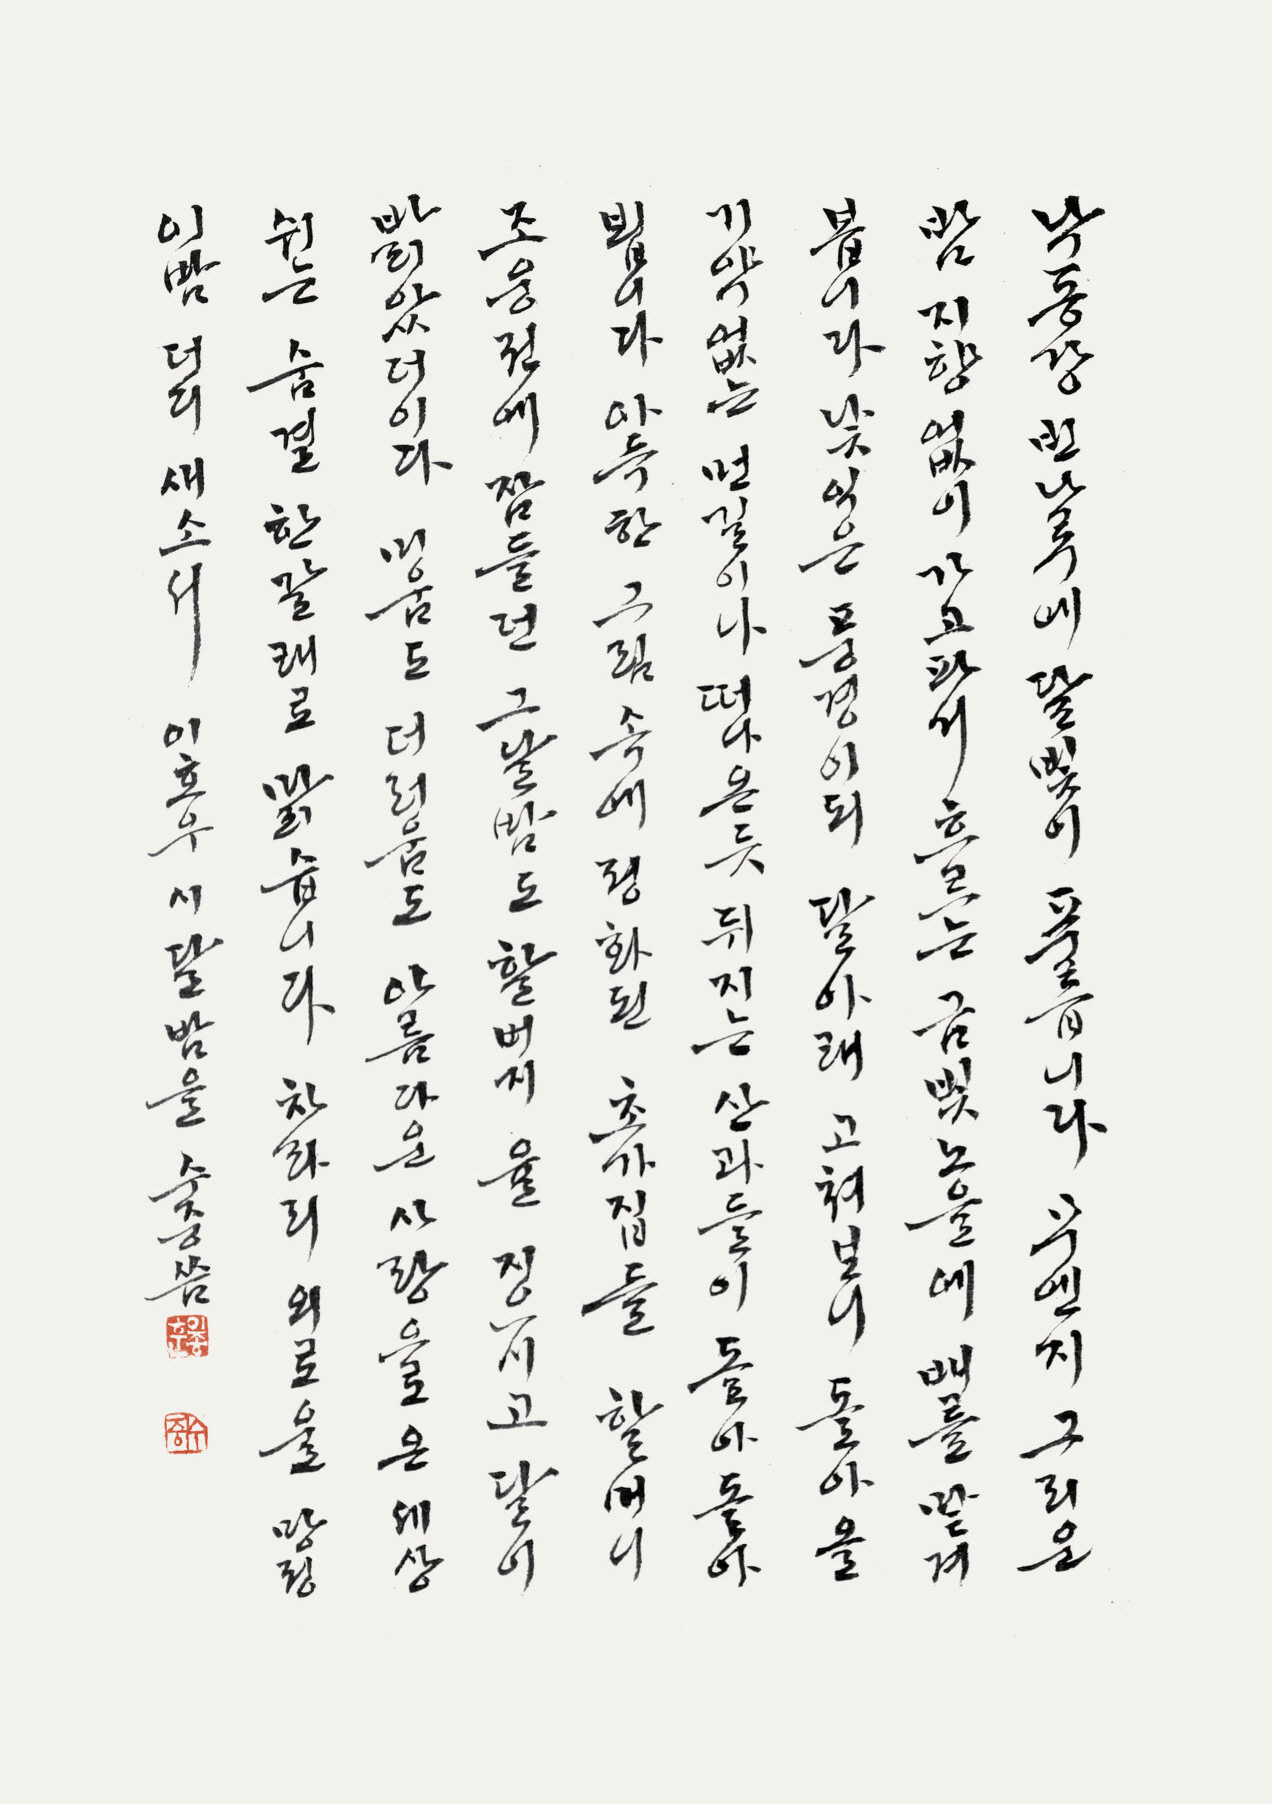 낙동강 빈나루에 달빛이 푸릅니다 무엔지 그리운
밤 지향없이 가고파서 흐르는 금빛노을에 배를 맡겨
봅니다 낯익은 풍경이되 달아래 고쳐보니 돌아올
기약없는 먼길이나 떠나온듯 뒤지는 산과들이 돌아돌아
뵙니다 아득한 그림속에 정화된 초가집들 할머니
조웅전에 잠들던 그날밤도 할버지 율 지으시고 달이
밝았더이다 미움도 더러움도 아름다운 사랑으로 온세상
쉬는 숨결 한갈래로 맑습니다 차라리 외로울망정
이밤 더디 새소서 이호우 시 달밤을 씀